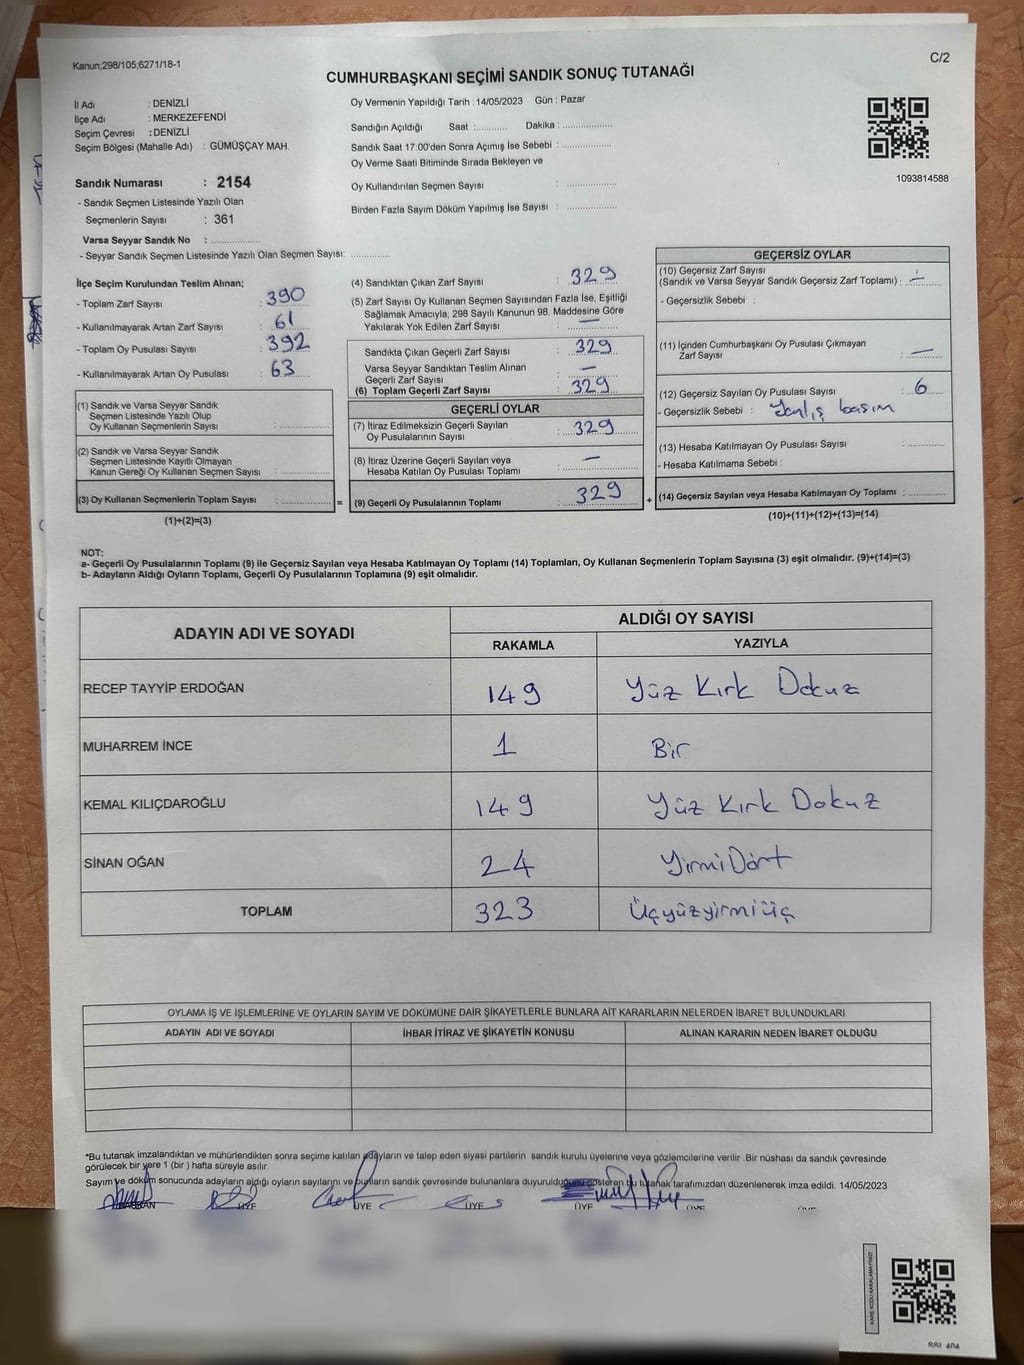 Kanun;298/105;6271/18-1
C/2
CUMHURBAŞKANI SEÇİMİ SANDIK SONUÇ TUTANAĞI
İl Adı : DENİZLİ
İlçe Adı : MERKEZEFENDİ
Seçim Çevresi : DENİZLİ
Seçim Bölgesi (Mahalle Adı) : GÜMÜŞÇAY MAH.
Sandık Numarası : 2154
- Sandık Seçmen Listesinde Yazılı Olan
Seçmenlerin Sayısı : 361
Varsa Seyyar Sandık No : ................
- Seyyar Sandık Seçmen Listesinde Yazılı Olan Seçmen Sayısı: .............
Oy Vermenin Yapıldığı Tarih : 14/05/2023 Gün : Pazar
Sandığın Açıldığı Saat :........... Dakika :................
Sandık Saat 17:00'den Sonra Açımış İse Sebebi :................
Oy Verme Saati Bitiminde Sırada Bekleyen ve
Oy Kullandırılan Seçmen Sayısı : ................
Birden Fazla Sayım Döküm Yapılmış İse Sayısı : ................
1093814588
İlçe Seçim Kurulundan Teslim Alınan;
- Toplam Zarf Sayısı : 390
- Kullanılmayarak Artan Zarf Sayısı : 61
- Toplam Oy Pusulası Sayısı : 392
- Kullanılmayarak Artan Oy Pusulası : 63
(1) Sandık ve Varsa Seyyar Sandık
Seçmen Listesinde Yazılı Olup
Oy Kullanan Seçmenlerin Sayısı : ..............
(2) Sandık ve Varsa Seyyar Sandık
Seçmen Listesinde Kayıtlı Olmayan
Kanun Gereği Oy Kullanan Seçmen Sayısı : ..............
(3) Oy Kullanan Seçmenlerin Toplam Sayısı : ..............
(1)+(2)=(3)
=
(4) Sandıktan Çıkan Zarf Sayısı : 329
(5) Zarf Sayısı Oy Kullanan Seçmen Sayısından Fazla İse, Eşitliği
Sağlamak Amacıyla; 298 Sayılı Kanunun 98. Maddesine Göre
Yakılarak Yok Edilen Zarf Sayısı : —
Sandıkta Çıkan Geçerli Zarf Sayısı : 329
Varsa Seyyar Sandıktan Teslim Alınan
Geçerli Zarf Sayısı : —
(6) Toplam Geçerli Zarf Sayısı : 329
GEÇERLİ OYLAR
(7) İtiraz Edilmeksizin Geçerli Sayılan
Oy Pusulalarının Sayısı : 329
(8) İtiraz Üzerine Geçerli Sayılan veya
Hesaba Katılan Oy Pusulası Toplamı : —
(9) Geçerli Oy Pusulalarının Toplamı : 329
+
GEÇERSİZ OYLAR
(10) Geçersiz Zarf Sayısı
(Sandık ve Varsa Seyyar Sandık Geçersiz Zarf Toplamı) : —
- Geçersizlik Sebebi :
(11) İçinden Cumhurbaşkanı Oy Pusulası Çıkmayan
Zarf Sayısı : —
(12) Geçersiz Sayılan Oy Pusulası Sayısı : 6
- Geçersizlik Sebebi : Yanlış basım
(13) Hesaba Katılmayan Oy Pusulası Sayısı : ..........
- Hesaba Katılmama Sebebi :
(14) Geçersiz Sayılan veya Hesaba Katılmayan Oy Toplamı : ..........
(10)+(11)+(12)+(13)=(14)
NOT:
a- Geçerli Oy Pusulalarının Toplamı (9) ile Geçersiz Sayılan veya Hesaba Katılmayan Oy Toplamı (14) Toplamları, Oy Kullanan Seçmenlerin Toplam Sayısına (3) eşit olmalıdır. (9)+(14)=(3)
b- Adayların Aldığı Oyların Toplamı, Geçerli Oy Pusulalarının Toplamına (9) eşit olmalıdır.
ADAYIN ADI VE SOYADI
ALDIĞI OY SAYISI
RAKAMLA YAZIYLA
RECEP TAYYİP ERDOĞAN 149 Yüz Kırk Dokuz
MUHARREM İNCE 1 Bir
KEMAL KILIÇDAROĞLU 149 Yüz Kırk Dokuz
SİNAN OĞAN 24 YirmiDört
TOPLAM 323 Üçyüzyirmiüç
OYLAMA İŞ VE İŞLEMLERİNE VE OYLARIN SAYIM VE DÖKÜMÜNE DAİR ŞİKAYETLERLE BUNLARA AİT KARARLARIN NELERDEN İBARET BULUNDUKLARI
ADAYIN ADI VE SOYADI İHBAR İTİRAZ VE ŞİKAYETİN KONUSU ALINAN KARARIN NEDEN İBARET OLDUĞU
*Bu tutanak imzalandıktan ve mühürlendikten sonra seçime katılan adayların ve talep eden siyasi partilerin sandık kurulu üyelerine veya gözlemcilerine verilir .Bir nüshası da sandık çevresinde
görülecek bir yere 1 (bir ) hafta süreyle asılır.
Sayım ve döküm sonucunda adayların aldığı oyların sayılarını ve bunların sandık çevresinde bulunanlara duyurulduğunu gösteren bu tutanak tarafımızdan düzenlenerek imza edildi. 14/05/2023
BAŞKAN ÜYE ÜYE ÜYE ÜYE
KARE KODU KARALAMAYINIZ!